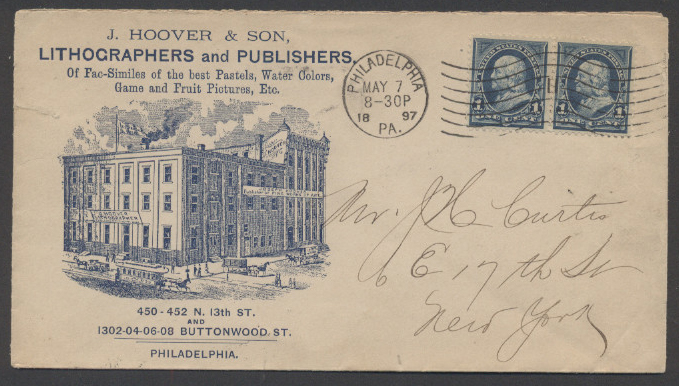 J. HOOVER & SON,
LITHOGRAPHERS and PUBLISHERS,
Of Fac-Similes of the best Pastels, Water Colors,
Game and Fruit Pictures, Etc.
PHILADELPHIA
MAY 7
8-30P
18 97
PA.
1 1
ONE CENT ONE CENT
Mr. J H Curtis
6 E 17th St
New York
450-452 N. 13th ST.
AND
1302-04-06-08 BUTTONWOOD ST.
PHILADELPHIA.